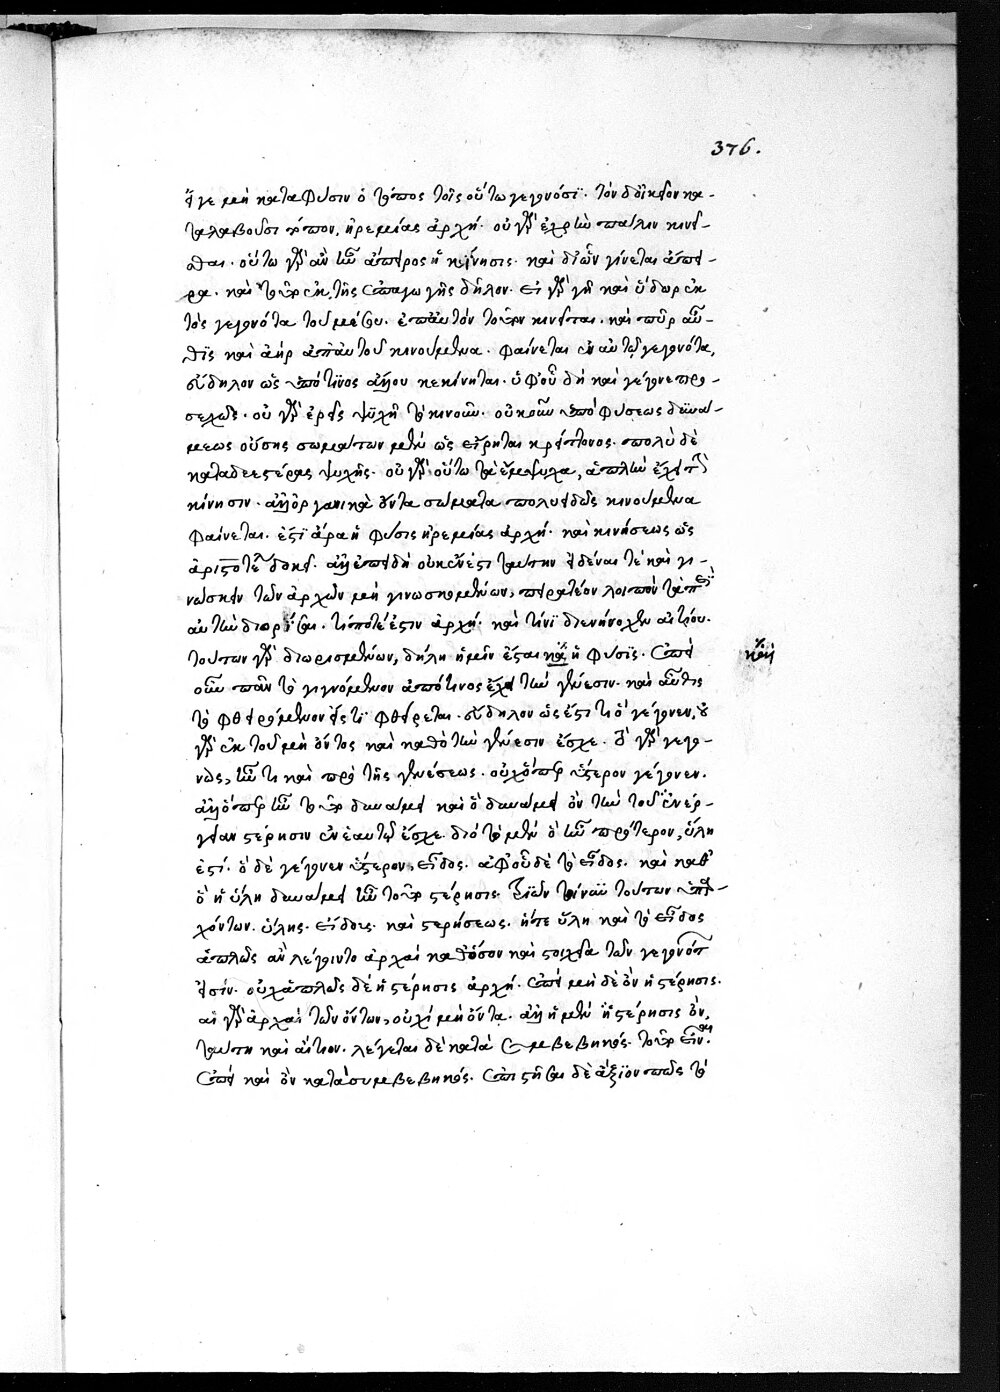 376.
εἴγε μὴ κατὰ φύσιν ὁ τόπος τοῖς οὕτω γεγονόσι. τὸν δὲ οἰκεῖον κα-
ταλαβοῦσι τόπον, ἠρεμίας ἀρχή. οὐ γὰρ ἐχρῆν πάλιν κινεῖ-
σθαι. οὕτω γὰρ ἂν ἦν ἄπειρος ἡ κίνησις. καὶ δι' ὧν γίνεται ἄπει-
ρα. καὶ τοῦτο ἐκ τῆς ἐπαγωγῆς δῆλον. εἰ γὰρ γῆ καὶ ὕδωρ ἐκ-
τὸς γεγονότα τοῦ μέσου. ἐπ' αὐτὸν τοῦτον κινεῖται. καὶ πῦρ αὖ-
θις καὶ ἀὴρ ἀπ' αὐτοῦ κινούμενα. φαίνεται ἐν αὐτῷ γεγονότα,
εὔδηλον ὡς ὑπό τινος ἄλλου κεκίνηται. ὑφ' οὗ δὴ καὶ γέγονε προ-
σεχῶς. οὐ γὰρ ἐρεῖς ψυχὴν τὸ κινοῦν. οὐκοῦν ὑπὸ φύσεως δυνά-
μεως οὔσης σωμάτων μὲν ὡς εἴρηται κρείττονος. πολὺ δὲ
καταδεεστέρας ψυχῆς. οὐ γὰρ οὕτω τὰ ἔμψυχα, ἁπλῆν ἔχει τὴν
κίνησιν. ἀλλ' ὀργανικὰ ὄντα σώματα πολυειδῶς κινούμενα
φαίνεται. ἔστι ἄρα ἡ φύσις ἠρεμίας ἀρχή. καὶ κινήσεως ὡς
ἀριστοτέλει δοκεῖ. ἀλλ' ἐπειδὴ οὐκ ἔνεστι ταύτην εἰδέναι τὲ καὶ γι-
νώσκειν τῶν ἀρχῶν μὴ γινωσκομένων, πειρατέον λοιπὸν τὰ περὶ
αὐτῶν διορίσαι. τί ποτέ ἐστιν ἀρχή. καὶ τίνι διενήνοχεν αἰτίου.
τούτων γὰρ διωρισμένων, δήλη ἡμῖν ἔσται καὶ ἡ φύσις. ἐπεὶ
οὖν πᾶν τὸ γιγνόμενον ἀπό τινος ἔχει τὴν γένεσιν. καὶ αὖθις
τὸ φθειρόμενον εἴς τι φθείρεται. εὔδηλον ὡς ἔστι τι ὃ γέγονεν, οὐ
γὰρ ἐκ τοῦ μὴ ὄντος καὶ καθὸ τὴν γένεσιν ἔσχε. ὃ γὰρ γεγο-
νὼς, ἦν τι καὶ πρὸ τῆς γενέσεως. οὐχ ὅπερ ὕστερον γέγονεν.
ἀλλ' ὅπερ ἦν τοῦτο δυνάμει καὶ ὃ δυνάμει ὂν τὴν τοῦ ἐνερ-
γείαν στέρησιν ἐν ἑαυτῷ ἔσχε. διὸ τὸ μὲν ὃ ἦν πρότερον, ὕλη
ἐστί. ὃ δὲ γέγονεν ὕστερον, εἶδος. ἀφ' οὗ δὲ τὸ εἶδος. καὶ καθ'
ὃ ἡ ὕλη δυνάμει ἦν τοῦτο στέρησις. τριῶν τοίνυν τούτων ὑπαρ-
χόντων. ὕλης. εἴδους. καὶ στερήσεως. ἥτε ὕλη καὶ τὸ εἶδος
ἁπλῶς ἂν λέγοιντο ἀρχαὶ καθόσον καὶ στοιχεῖα τῶν γεγονότων
εἰσίν. οὐχ ἁπλῶς δὲ ἡ στέρησις ἀρχή. ἐπεὶ μὴ δὲ ὂν ἡ στέρησις.
αἱ γὰρ ἀρχαὶ τῶν ὄντων, οὐχὶ μὴ ὄντα. ἀλλ' ᾗ μὲν ἡ στέρησις ὂν,
ταύτη καὶ αἴτιον. λέγεται δὲ κατὰ συμβεβηκός. τοῦτο εἶναι.
ἐπεὶ καὶ ὂν κατὰ συμβεβηκός. ἐπιστῆσαι δὲ ἄξιον πῶς τὸ